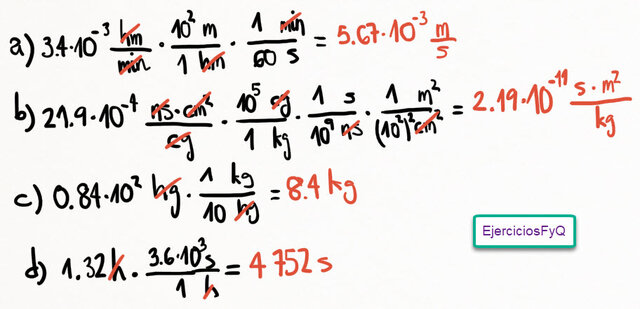 a) 3.4·10⁻³ hm/min · 10² m/1 hm · 1 min/60 s = 5.67·10⁻³ m/s
b) 21.9·10⁻⁴ ns·cm²/cg · 10⁵ cg/1 kg · 1 s/10⁹ ns · 1 m²/(10²)² cm² = 2.19·10⁻¹¹ s·m²/kg
c) 0.84·10² hg · 1 kg/10 hg = 8.4 kg
EjerciciosFyQ
d) 1.32h · 3.6·10³s/1 h = 4752 s